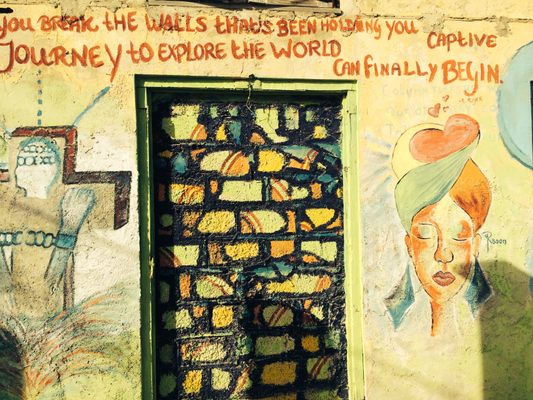 YOU BREAK THE WALLS THATS BEEN HOLDING YOU CAPTIVE
JOURNEY TO EXPLORE THE WORLD CAN FINALLY BEGIN.